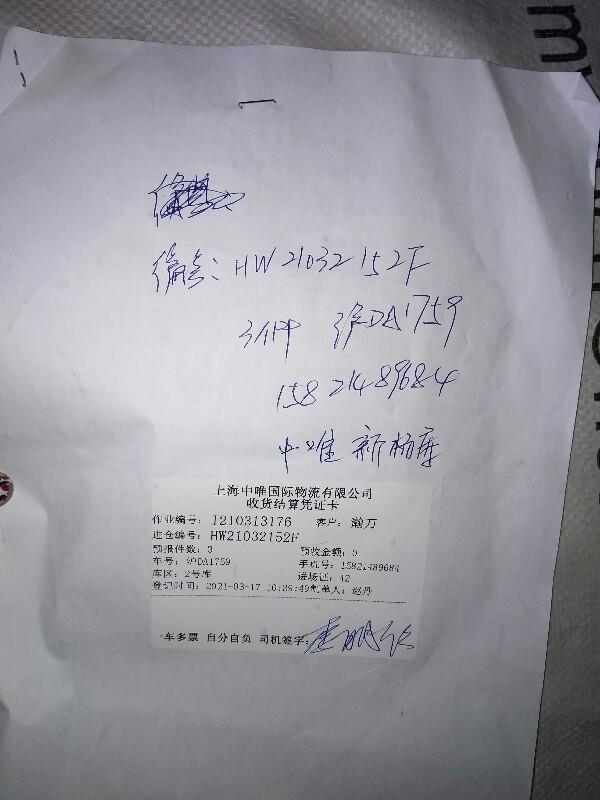 编号: HW21032152F
3件 沪DA1759
15821489684
中唯 新杨库
上海中唯国际物流有限公司
收货结算凭证卡
作业编号: I210313176 客户: 瀚万
进仓编号: HW21032152F
预报件数: 3 预收金额: 0
车号: 沪DA1759 手机号: 15821489684
库区: 2号库 进场证: 42
登记时间: 2021-03-17 16:39:49制单人: 赵丹
一车多票 自分自负 司机签字: